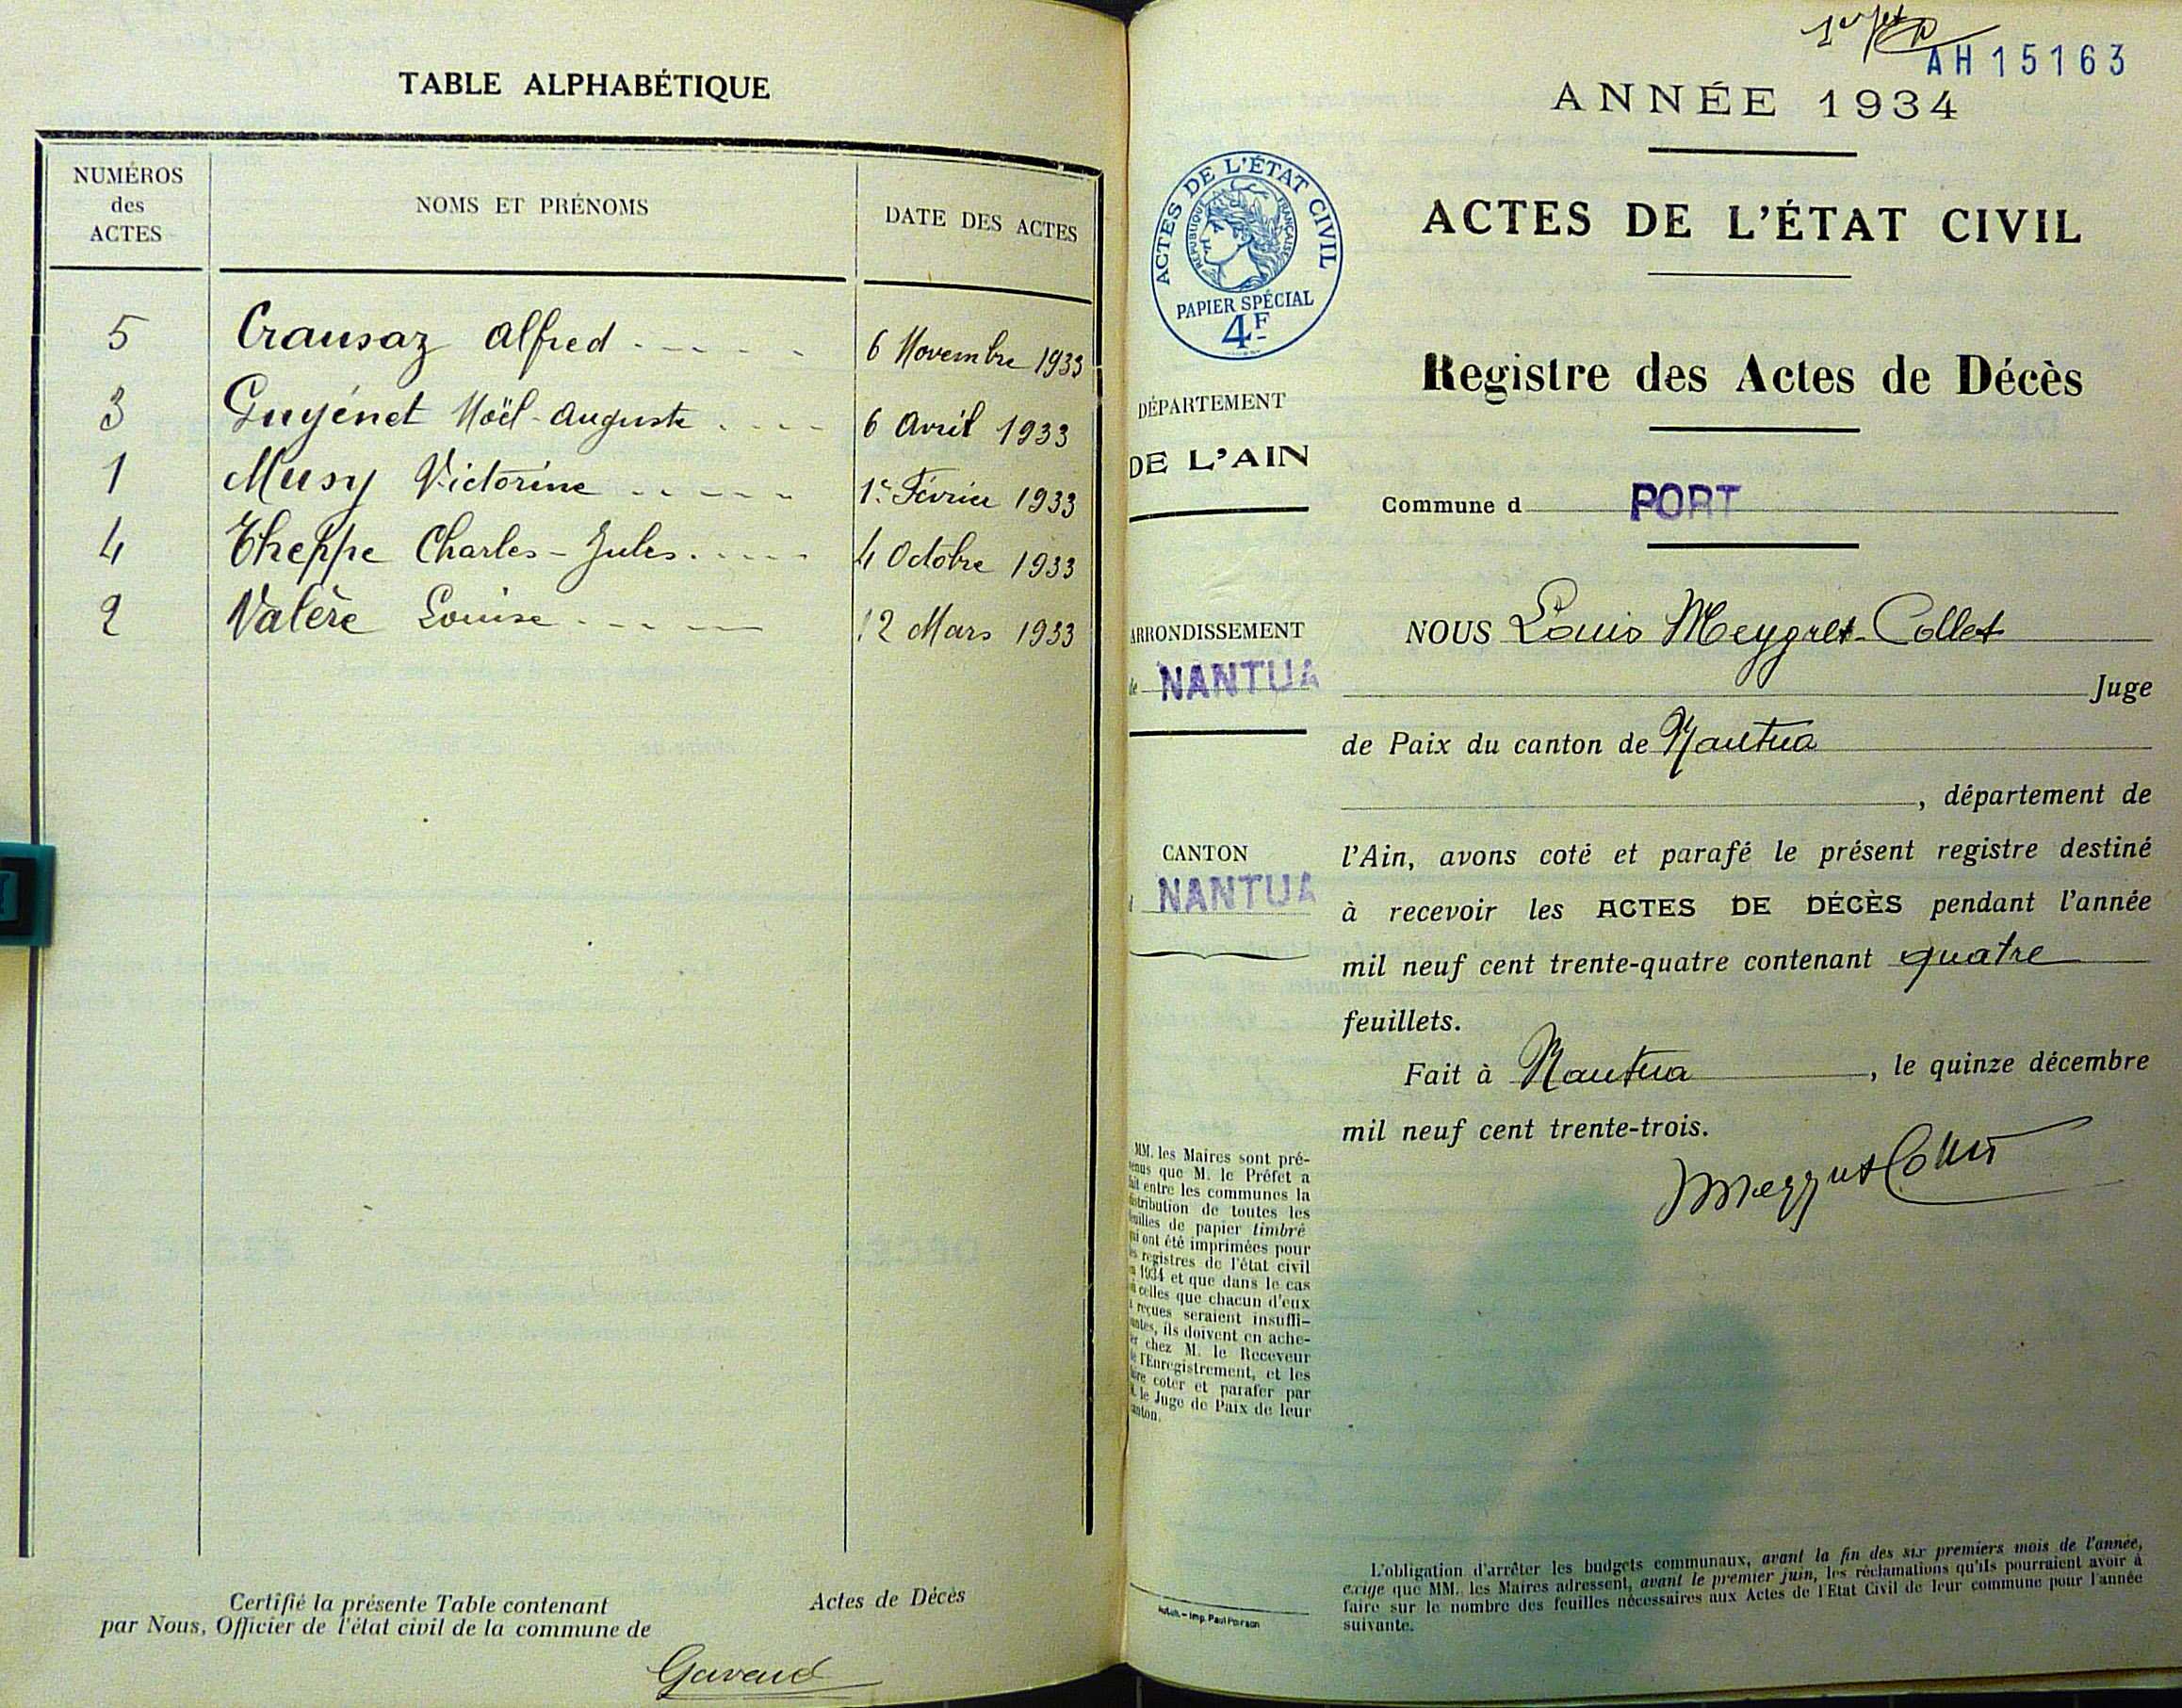 TABLE ALPHABÉTIQUE
NUMÉROS
des
ACTES
NOMS ET PRÉNOMS
DATE DES ACTES
5 Crausaz Alfred 6 Novembre 1933
3 Guyénet Noël-Auguste 6 Avril 1933
1 Musy Victorine 1er Février 1933
4 Theppe Charles-Jules 4 Octobre 1933
2 Valère Louise 12 Mars 1933
Certifié la présente Table contenant Actes de Décès
par Nous, Officier de l'état civil de la commune de
Gavaud
AH15163
ANNÉE 1934
ACTES DE L'ÉTAT CIVIL
RÉPUBLIQUE FRANÇAISE
PAPIER SPÉCIAL
4F
ACTES DE L'ÉTAT CIVIL
Registre des Actes de Décès
DÉPARTEMENT
DE L'AIN
Commune d PORT
ARRONDISSEMENT
de NANTUA
CANTON
NANTUA
NOUS Louis Meygret-Collet
Juge
de Paix du canton de Nantua
, département de
l'Ain, avons coté et parafé le présent registre destiné
à recevoir les ACTES DE DÉCÈS pendant l'année
mil neuf cent trente-quatre contenant quatre
feuillets.
Fait à Nantua, le quinze décembre
mil neuf cent trente-trois.
Meygret Collet
MM. les Maires sont pré-
enus que M. le Préfet a
ait entre les communes la
istribution de toutes les
euilles de papier timbré
ui ont été imprimées pour
es registres de l'état civil
n 1934 et que dans le cas
ù celles que chacun d'eux
a reçues seraient insuffi-
antes, ils doivent en ache-
er chez M. le Receveur
e l'Enregistrement, et les
aire coter et parafer par
M. le Juge de Paix de leur
anton.
Imp. Paul Poirson
L'obligation d'arrêter les budgets communaux, avant la fin des six premiers mois de l'année,
exige que MM. les Maires adressent, avant le premier juin, les réclamations qu'ils pourraient avoir à
faire sur le nombre des feuilles nécessaires aux Actes de l'Etat Civil de leur commune pour l'année
suivante.